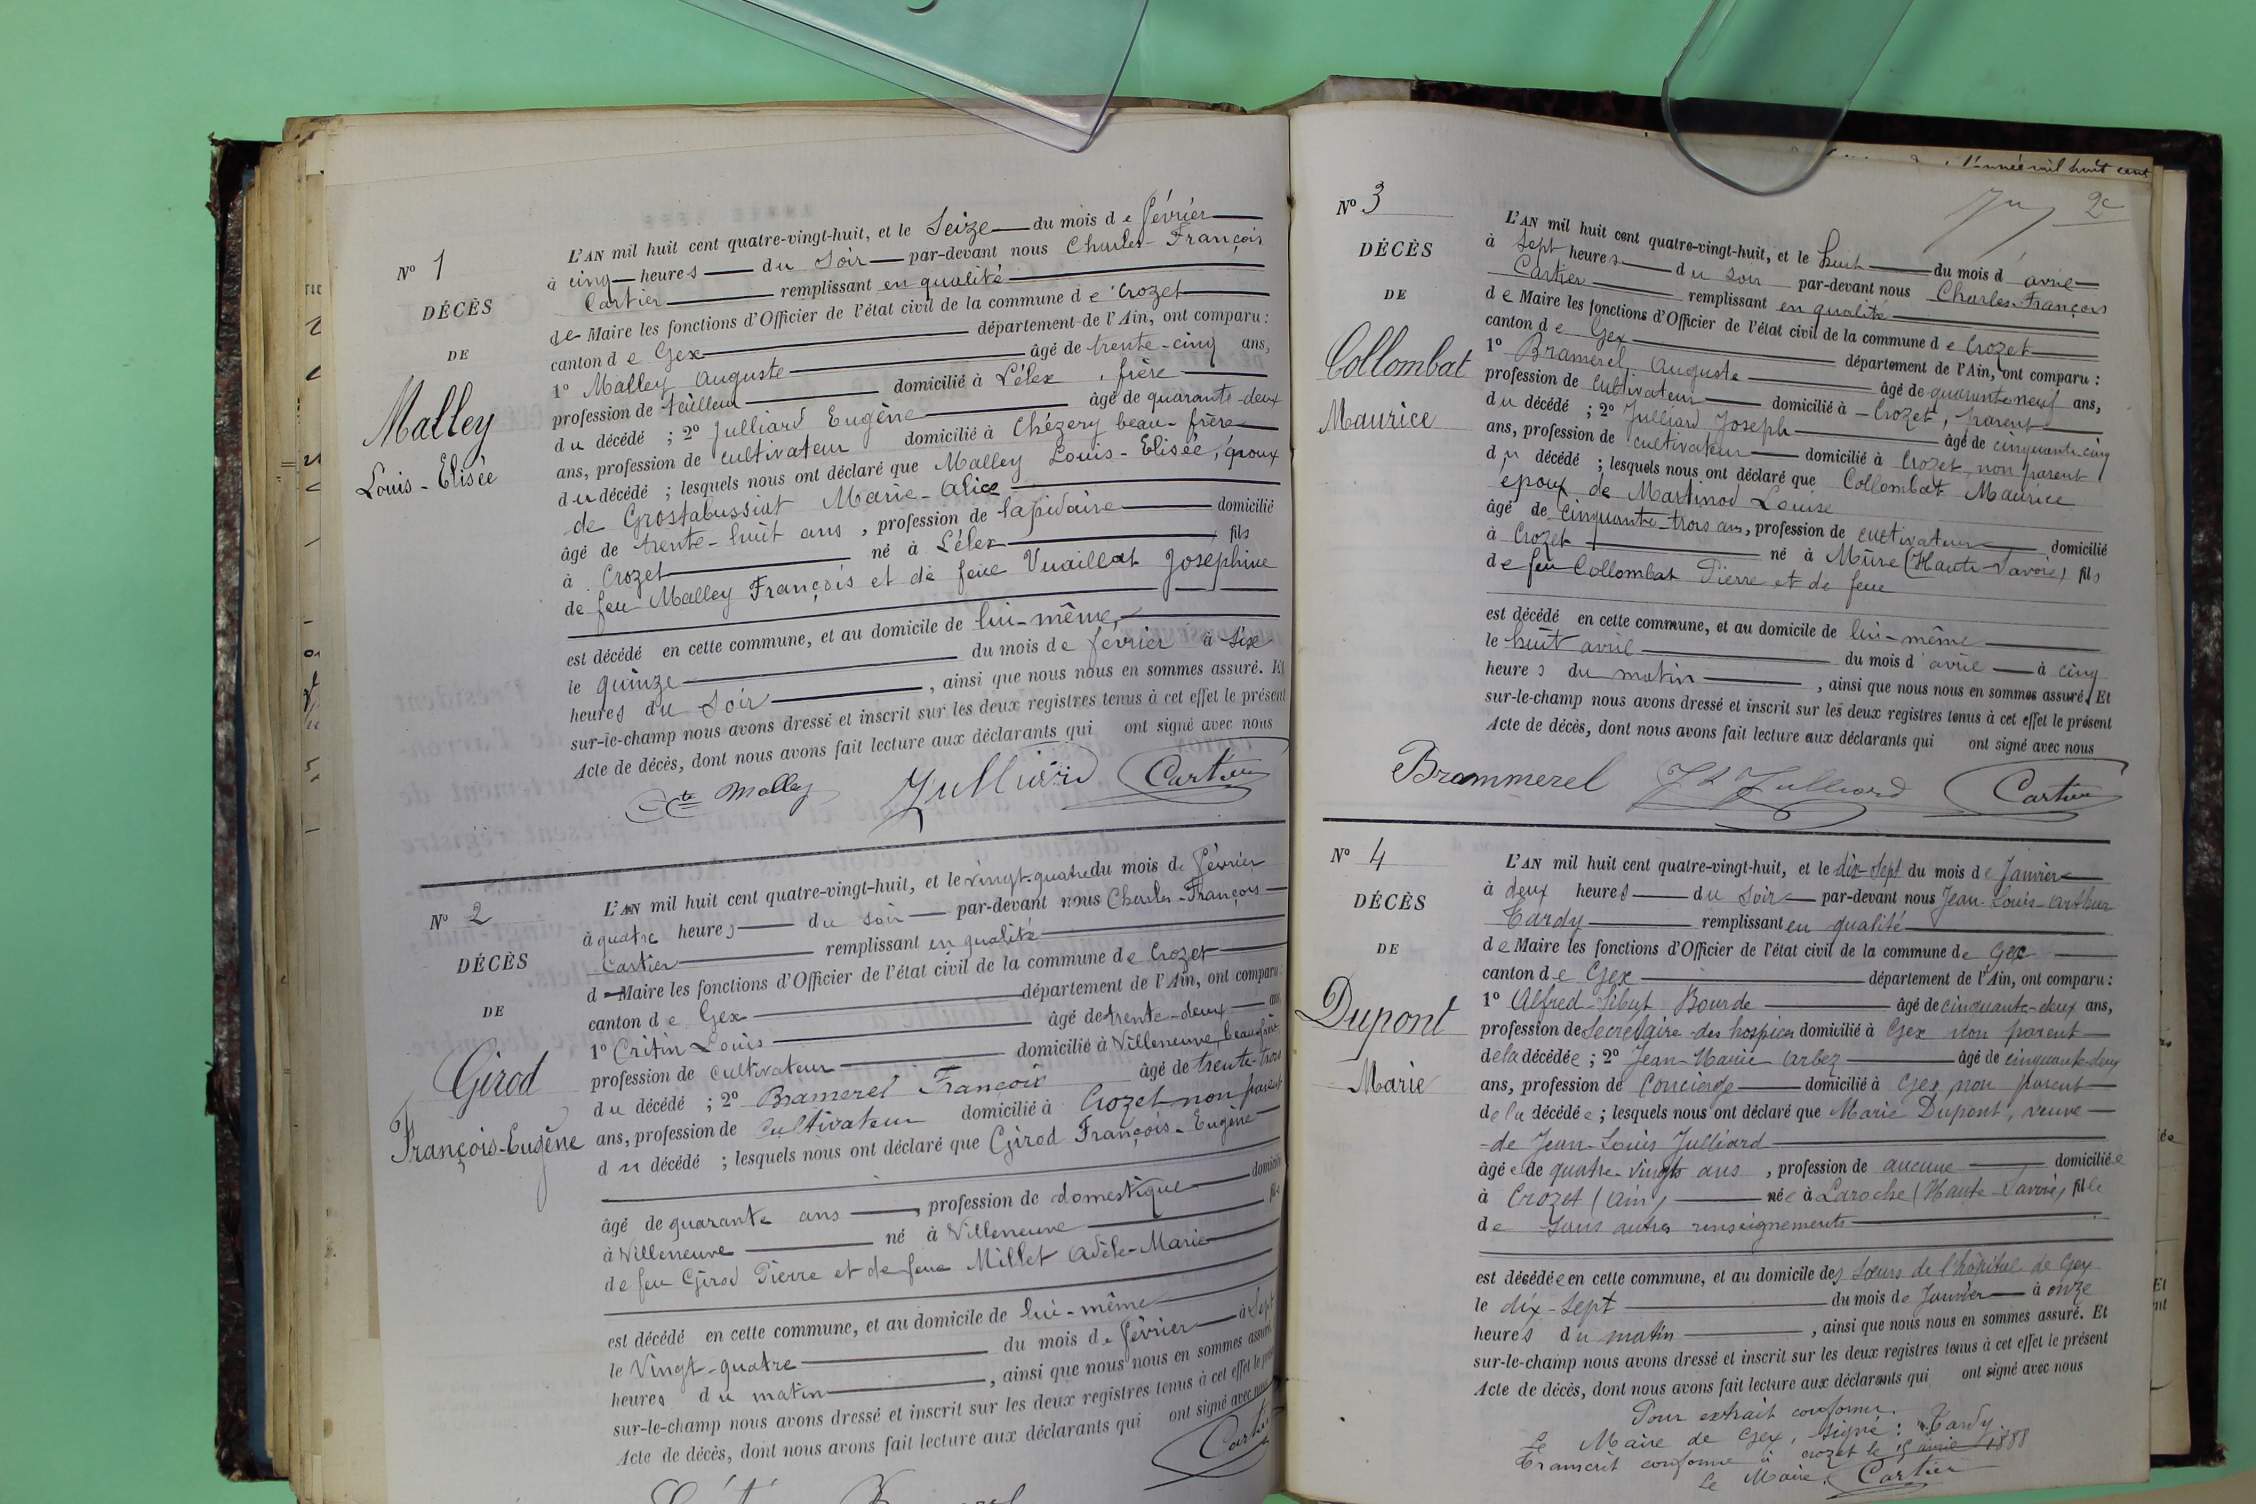 N° 1
DÉCÈS
DE
Malley
Louis-Elisée
L'AN mil huit cent quatre-vingt-huit, et le Seize du mois de février
à cinq heures du soir par-devant nous Charles-François
Cartier remplissant en qualité
de Maire les fonctions d'Officier de l'état civil de la commune de Crozet
canton de Gex département de l'Ain, ont comparu :
1° Malley Auguste âgé de trente-cinq ans,
profession de tailleur domicilié à Lélex, frère
du décédé ; 2° Julliard Eugène âgé de quarante-deux
ans, profession de cultivateur domicilié à Chézery beau-frère
du décédé ; lesquels nous ont déclaré que Malley Louis-Elisée, époux
de Grostabussiat Marie-Alice
âgé de trente-huit ans, profession de lapidaire domicilié
à Crozet né à Lélex fils
de feu Malley François et de feue Vuaillat Joséphine
est décédé en cette commune, et au domicile de lui-même,
le quinze du mois de février à six
heures du soir, ainsi que nous nous en sommes assuré. Et
sur-le-champ nous avons dressé et inscrit sur les deux registres tenus à cet effet le présent
Acte de décès, dont nous avons fait lecture aux déclarants qui ont signé avec nous
Malley Julliard Cartier
N° 2
DÉCÈS
DE
Girod
François-Eugène
L'AN mil huit cent quatre-vingt-huit, et le vingt-quatre du mois de février
à quatre heures du soir par-devant nous Charles-François
Cartier remplissant en qualité
d Maire les fonctions d'Officier de l'état civil de la commune de Crozet
canton de Gex département de l'Ain, ont comparu :
1° Critin Louis âgé de trente-deux ans,
profession de cultivateur domicilié à Villeneuve, beau-frère
du décédé ; 2° Bramerel François âgé de trente-trois
ans, profession de cultivateur domicilié à Crozet non parent
du décédé ; lesquels nous ont déclaré que Girod François-Eugène
âgé de quarante ans, profession de domestique domicilié
à Villeneuve né à Villeneuve fils
de feu Girod Pierre et de feue Millet Adèle-Marie
est décédé en cette commune, et au domicile de lui-même
le vingt-quatre du mois de février à sept
heures du matin, ainsi que nous nous en sommes assuré
sur-le-champ nous avons dressé et inscrit sur les deux registres tenus à cet effet le présent
Acte de décès, dont nous avons fait lecture aux déclarants qui ont signé avec nous
Cartier
l'année mil huit cent
2e
N° 3
DÉCÈS
DE
Collombat
Maurice
L'AN mil huit cent quatre-vingt-huit, et le huit du mois d'avril
à sept heures du soir par-devant nous Charles-François
Cartier remplissant en qualité
de Maire les fonctions d'Officier de l'état civil de la commune de Crozet
canton de Gex département de l'Ain, ont comparu :
1° Bramerel Auguste âgé de quarante neuf ans,
profession de cultivateur domicilié à Crozet, parent
du décédé ; 2° Julliard Joseph âgé de cinquante-cinq
ans, profession de cultivateur domicilié à Crozet non parent
du décédé ; lesquels nous ont déclaré que Collombat Maurice
époux de Martinod Louise
âgé de cinquante-trois ans, profession de cultivateur domicilié
à Crozet né à Mûre (Haute-Savoie) fils
de feu Collombat Pierre et de feue
est décédé en cette commune, et au domicile de lui-même
le huit avril du mois d'avril à cinq
heures du matin, ainsi que nous nous en sommes assuré. Et
sur-le-champ nous avons dressé et inscrit sur les deux registres tenus à cet effet le présent
Acte de décès, dont nous avons fait lecture aux déclarants qui ont signé avec nous
Brammerel Jh Julliard Cartier
N° 4
DÉCÈS
DE
Dupont
Marie
L'AN mil huit cent quatre-vingt-huit, et le dix-sept du mois de Janvier
à deux heures du soir par-devant nous Jean-Louis-Arthur
Tardy remplissant en qualité
de Maire les fonctions d'Officier de l'état civil de la commune de Gex
canton de Gex département de l'Ain, ont comparu :
1° Alfred Sibut Bourde âgé de cinquante-deux ans,
profession de Secrétaire des hospices domicilié à Gex non parent
de la décédée ; 2° Jean-Marie Arbez âgé de cinquante-deux
ans, profession de Concierge domicilié à Gex, non parent
de la décédée ; lesquels nous ont déclaré que Marie Dupont, veuve
de Jean-Louis Julliard
âgée de quatre-vingts ans, profession de aucune domiciliée
à Crozet (Ain) née à Laroche (Haute-Savoie) fille
de sans autres renseignements
est décédée en cette commune, et au domicile des soeurs de l'hôpital de Gex
le dix-sept du mois de Janvier à onze
heures du matin, ainsi que nous nous en sommes assuré. Et
sur-le-champ nous avons dressé et inscrit sur les deux registres tenus à cet effet le présent
Acte de décès, dont nous avons fait lecture aux déclarants qui ont signé avec nous
Pour extrait conforme.
Le Maire de Gex, signé : Tardy.
Transcrit conforme à Crozet le 15 avril 1888
Le Maire, Cartier